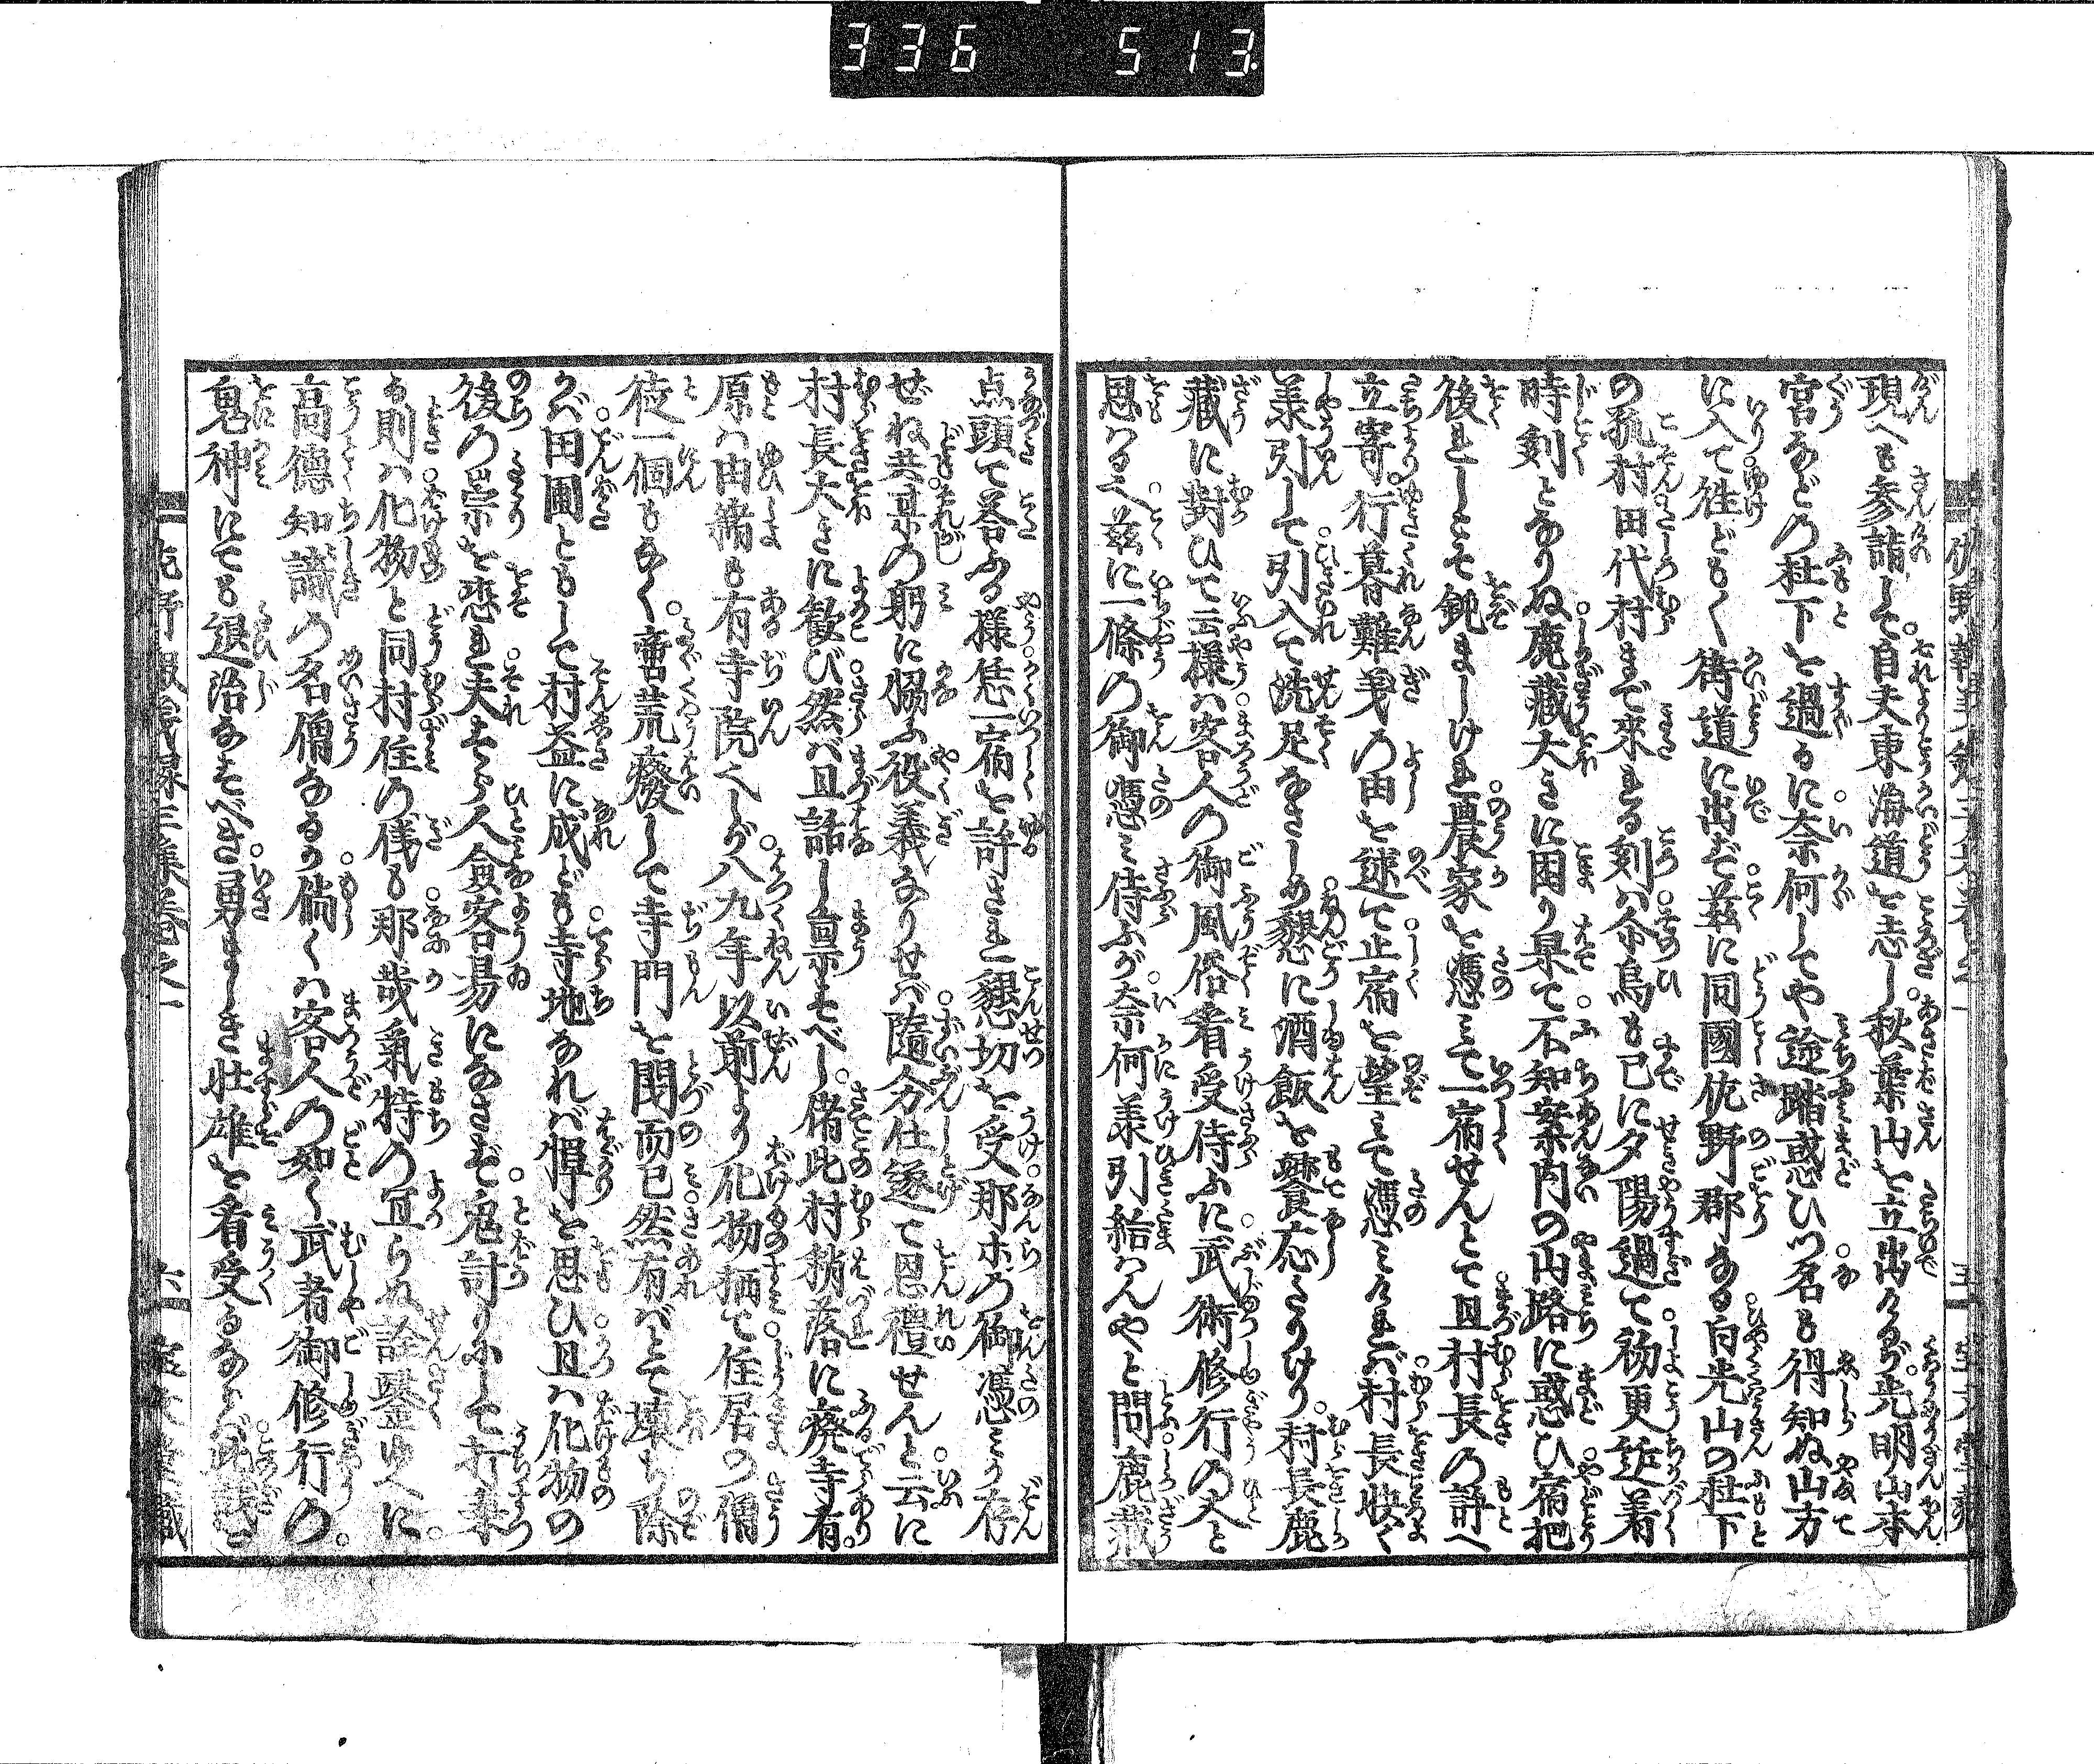 336 513
現へも参詣して自夫東海道を志し秋葉山を立出けるが光明山本
宮などの杜下を過るに奈何してや途踏惑ひつ名も得知ぬ山方
に入て徃ども〱街道に出ず茲に同國佐野郡なる白光山の杜下
の孤村田代村まで來る刻は金烏も已に夕陽過て初更近着
時刻となりぬ鹿藏大きに困り果て不知案内の山路に惑ひ宿把
後れしこそ鈍ましけれ農家を憑みて一宿せんとて且村長の許へ
立寄行暮難義の由を述て止宿を望みて憑みければ村長快く
羕引して引入て洗足なさしめ懇に酒飯を饗応さりけり村長鹿
藏に對ひて云様は客人の御風俗着受侍ふに武術修行の人と
思はる茲に一條の御憑み侍ふが奈何羕引給はんやと問鹿藏
点頭て答ふる様恁一宿を許され懇切を受那ホの御憑みか存
ぜね共某の躬に協ふ役義なりせば隨分仕遂て恩禮せんと云に
村長大きに歓び然ば且話し禀すべし偖此村稍落に廃寺有
原は由緒も有寺院しが八九年以前より化物栖て住居の僧
徒一個もなく啻荒癈して寺門を閉而已然有ばとて壊ち除
かば田圃ともして村益に成ども寺地なれば憚を思ひ且は化物の
後の祟を恐れ夫すら人僉容易になさず鬼討りふして打棄
有則は化物と同村住の儀も那哉氣特の宜らぬ詮鑿ゆへに
高德知識の名僧なるか倘くは客人の如く武者御修行の
鬼神にても退治なすべき勇ましき壮雄を看受るならば